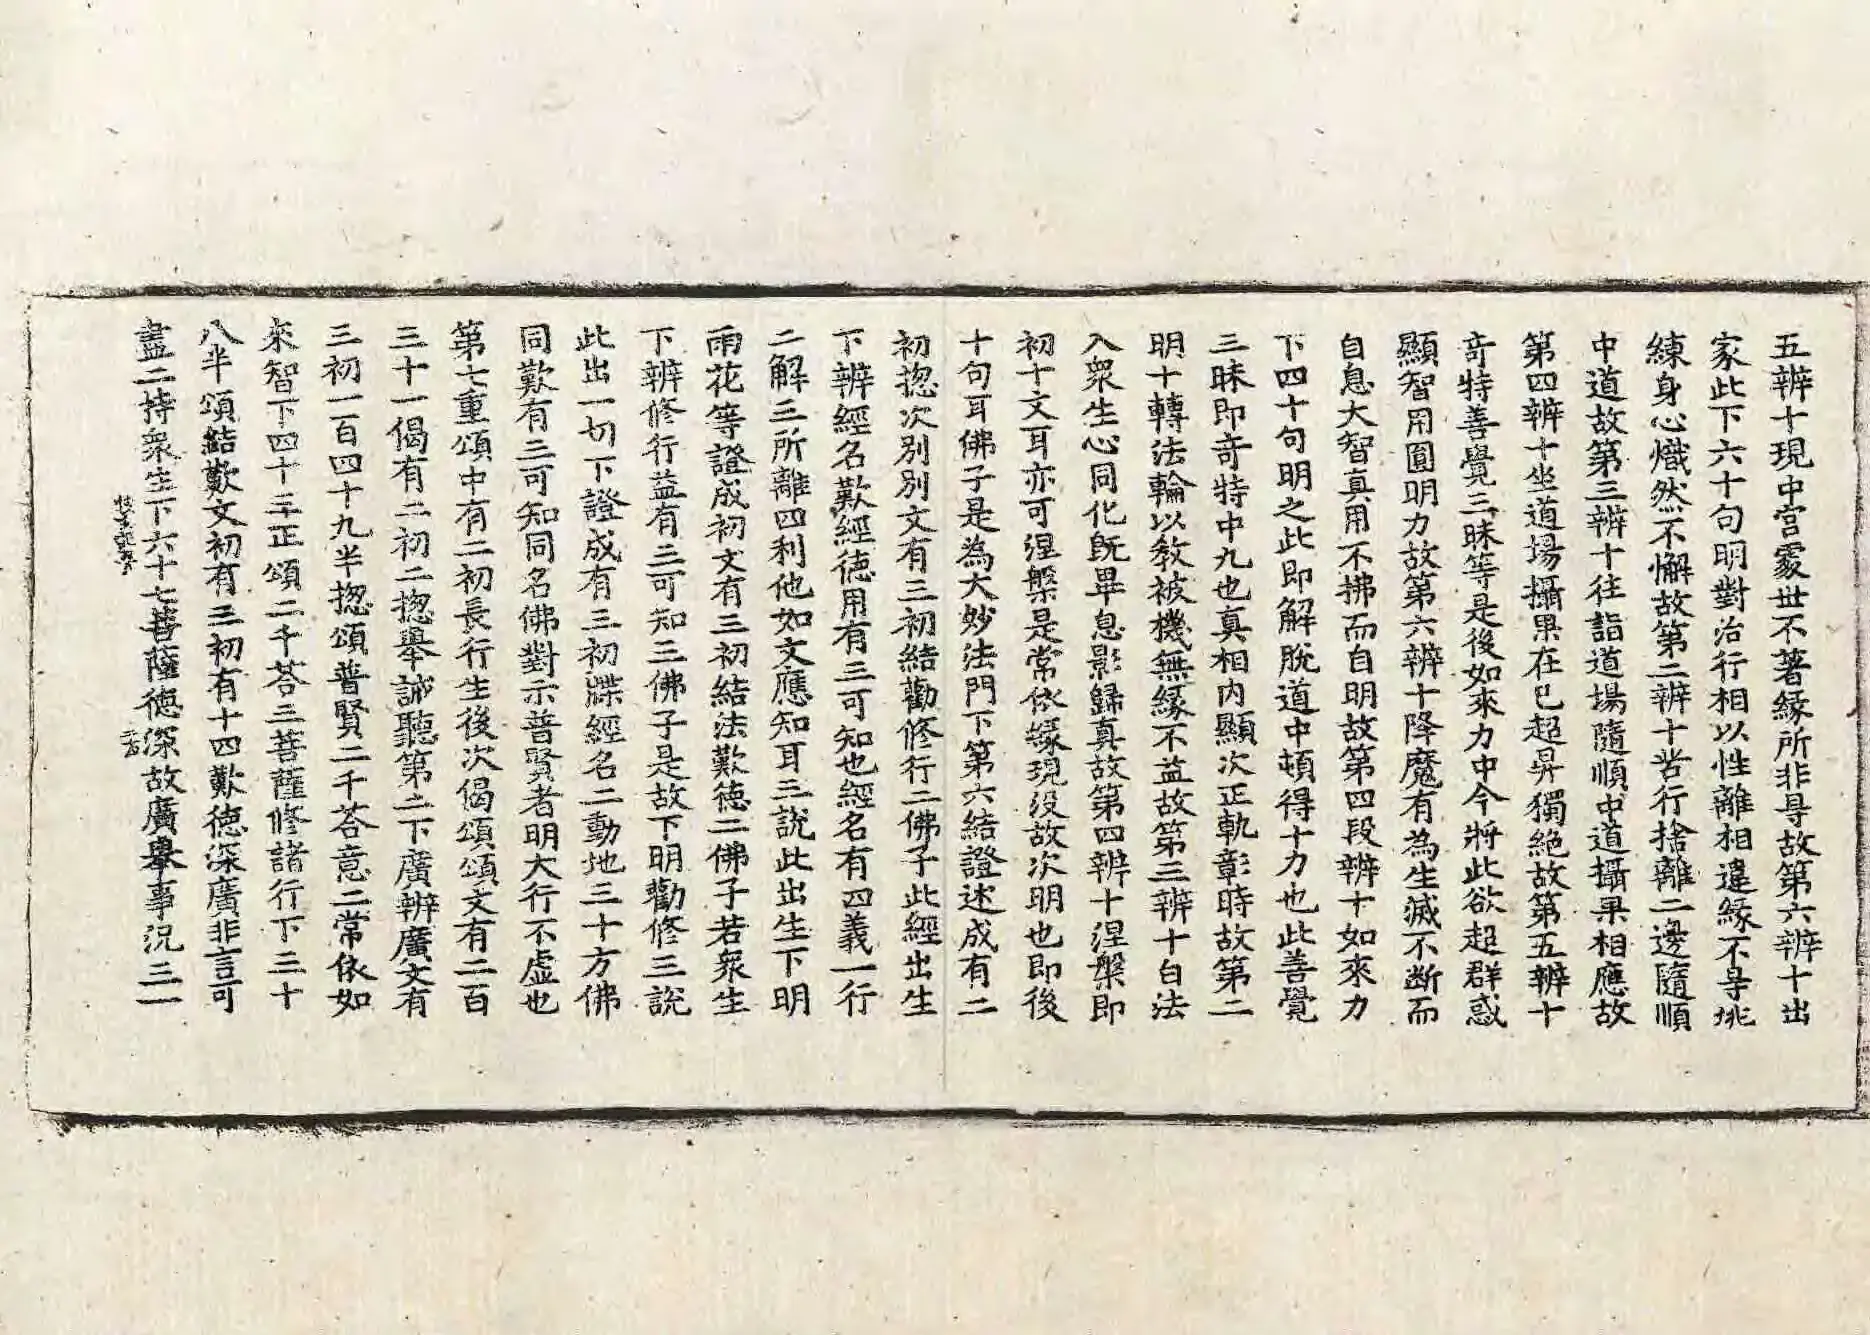 五辨十現中宮處世不著緣所非㝵故第六辨十出
家此下六十句明對治行相以性離相違緣不㝵挑
練身心熾然不懈故第二辨十苦行捨離二邊隨順
中道故第三辨十往詣道場隨順中道攝果相應故
第四辨十坐道場攝果在已超昇獨絕故第五辨十
奇特善覺三昧等是後如來力中今將此欲超群惑
顯智用圓明力故第六辨十降魔有為生滅不断而
自息大智真用不拂而自明故第四段辨十如來力
下四十句明之此即解脫道中頓得十力也此善覺
三昧即奇特中九也真相內顯次正軌彰時故第二
明十轉法輪以教被機無緣不益故第三辨十白法
入衆生心同化既畢息影歸真故第四辨十涅槃即
初十文耳亦可涅槃是常依緣現没故次明也即後
十句耳佛子是為大妙法門下第六結證述成有二
初揔次別別文有三初結勸修行二佛子此經出生
下辨經名歎經德用有三可知也經名有四義一行
二解三所離四利他如文應知耳三說此出生下明
雨花等證成初文有三初結法歎德二佛子若衆生
下辨修行益有三可知三佛子是故下明勸修三說
此出一切下證成有三初牒經名二動地三十方佛
同歎有三可知同名佛對示普賢者明大行不虛也
第七重頌中有二初長行生後次偈頌頌文有二百
三十一偈有二初二揔舉誡聽第二下廣辨廣文有
三初一百四十九半揔頌普賢二千荅意二常依如
來智下四十三正頌二千荅三菩薩修諸行下三十
八半頌結歎文初有三初有十四歎德深廣非言可
盡二持衆生下六十七菩薩德深故廣舉事況三一